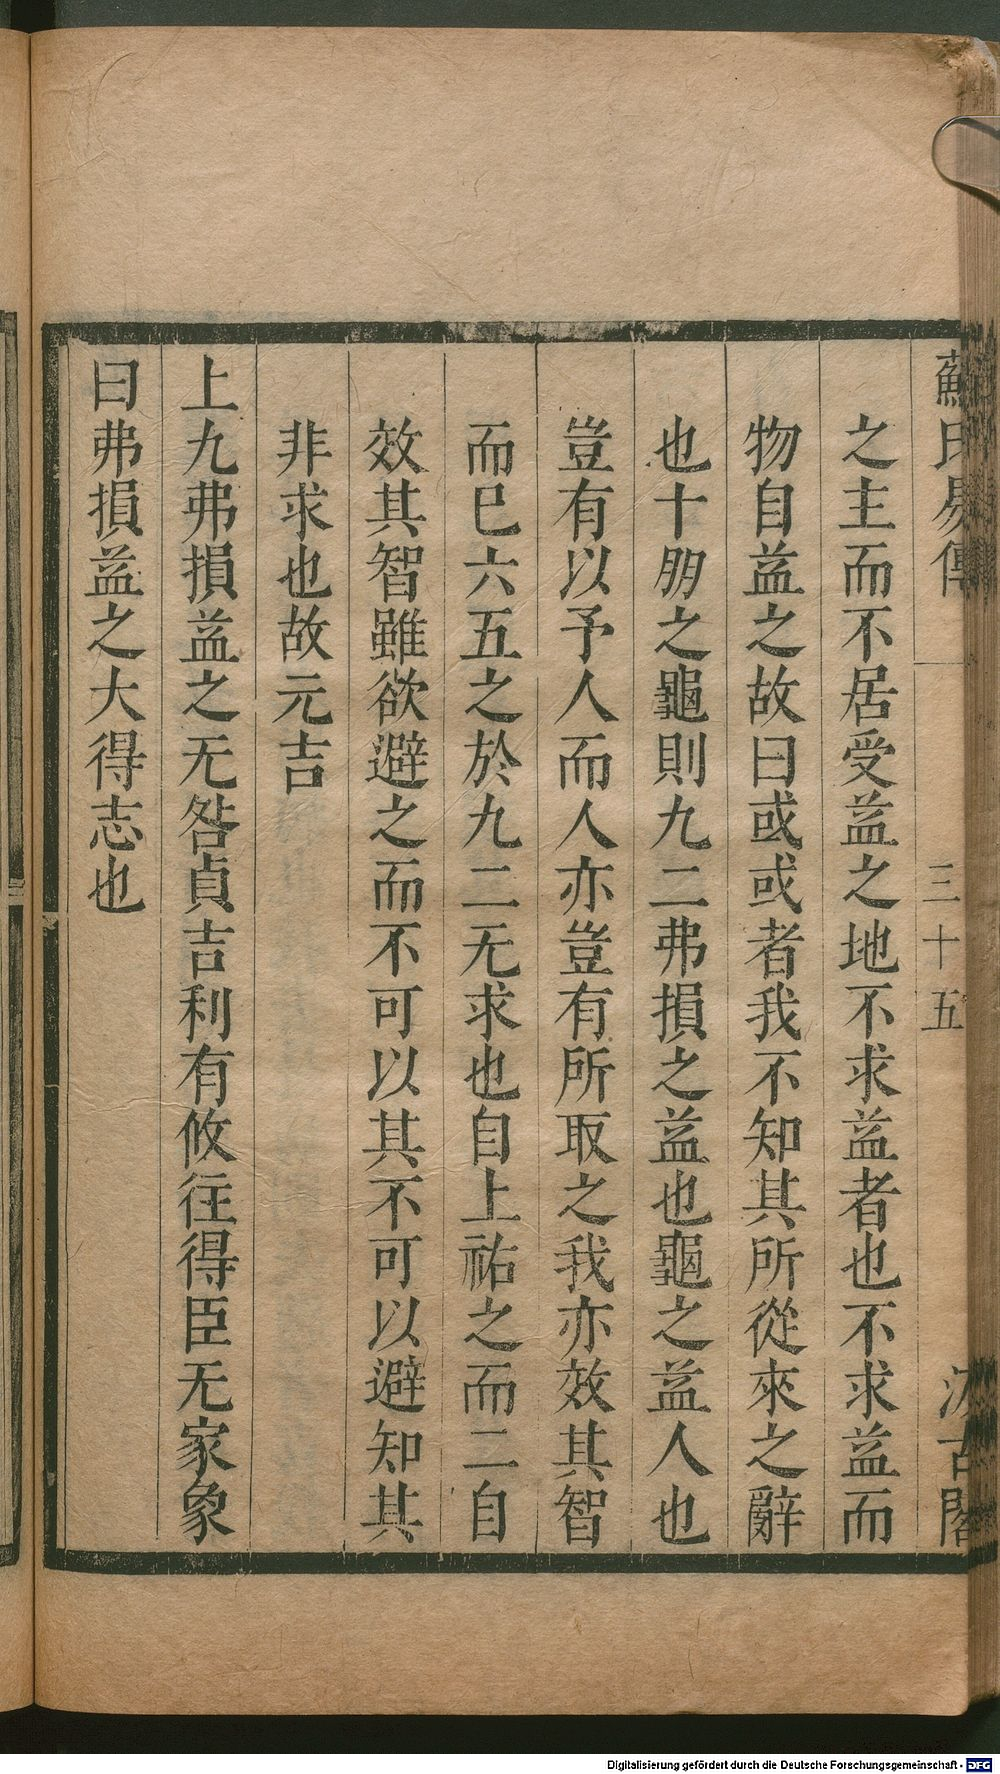 蘇氏易傳
三十五
汲古閣
之主而不居受益之地不求益者也不求益而
物自益之故曰或或者我不知其所從來之辭
也十朋之龜則九二弗損之益也龜之益人也
豈有以予人而人亦豈有所取之我亦效其智
而巳六五之於九二无求也自上祐之而二自
效其智雖欲避之而不可以其不可以避知其
非求也故元吉
上九弗損益之无咎貞吉利有攸往得臣无家象
曰弗損益之大得志也
Digitalisierung gefördert durch die Deutsche Forschungsgemeinschaft - DFG